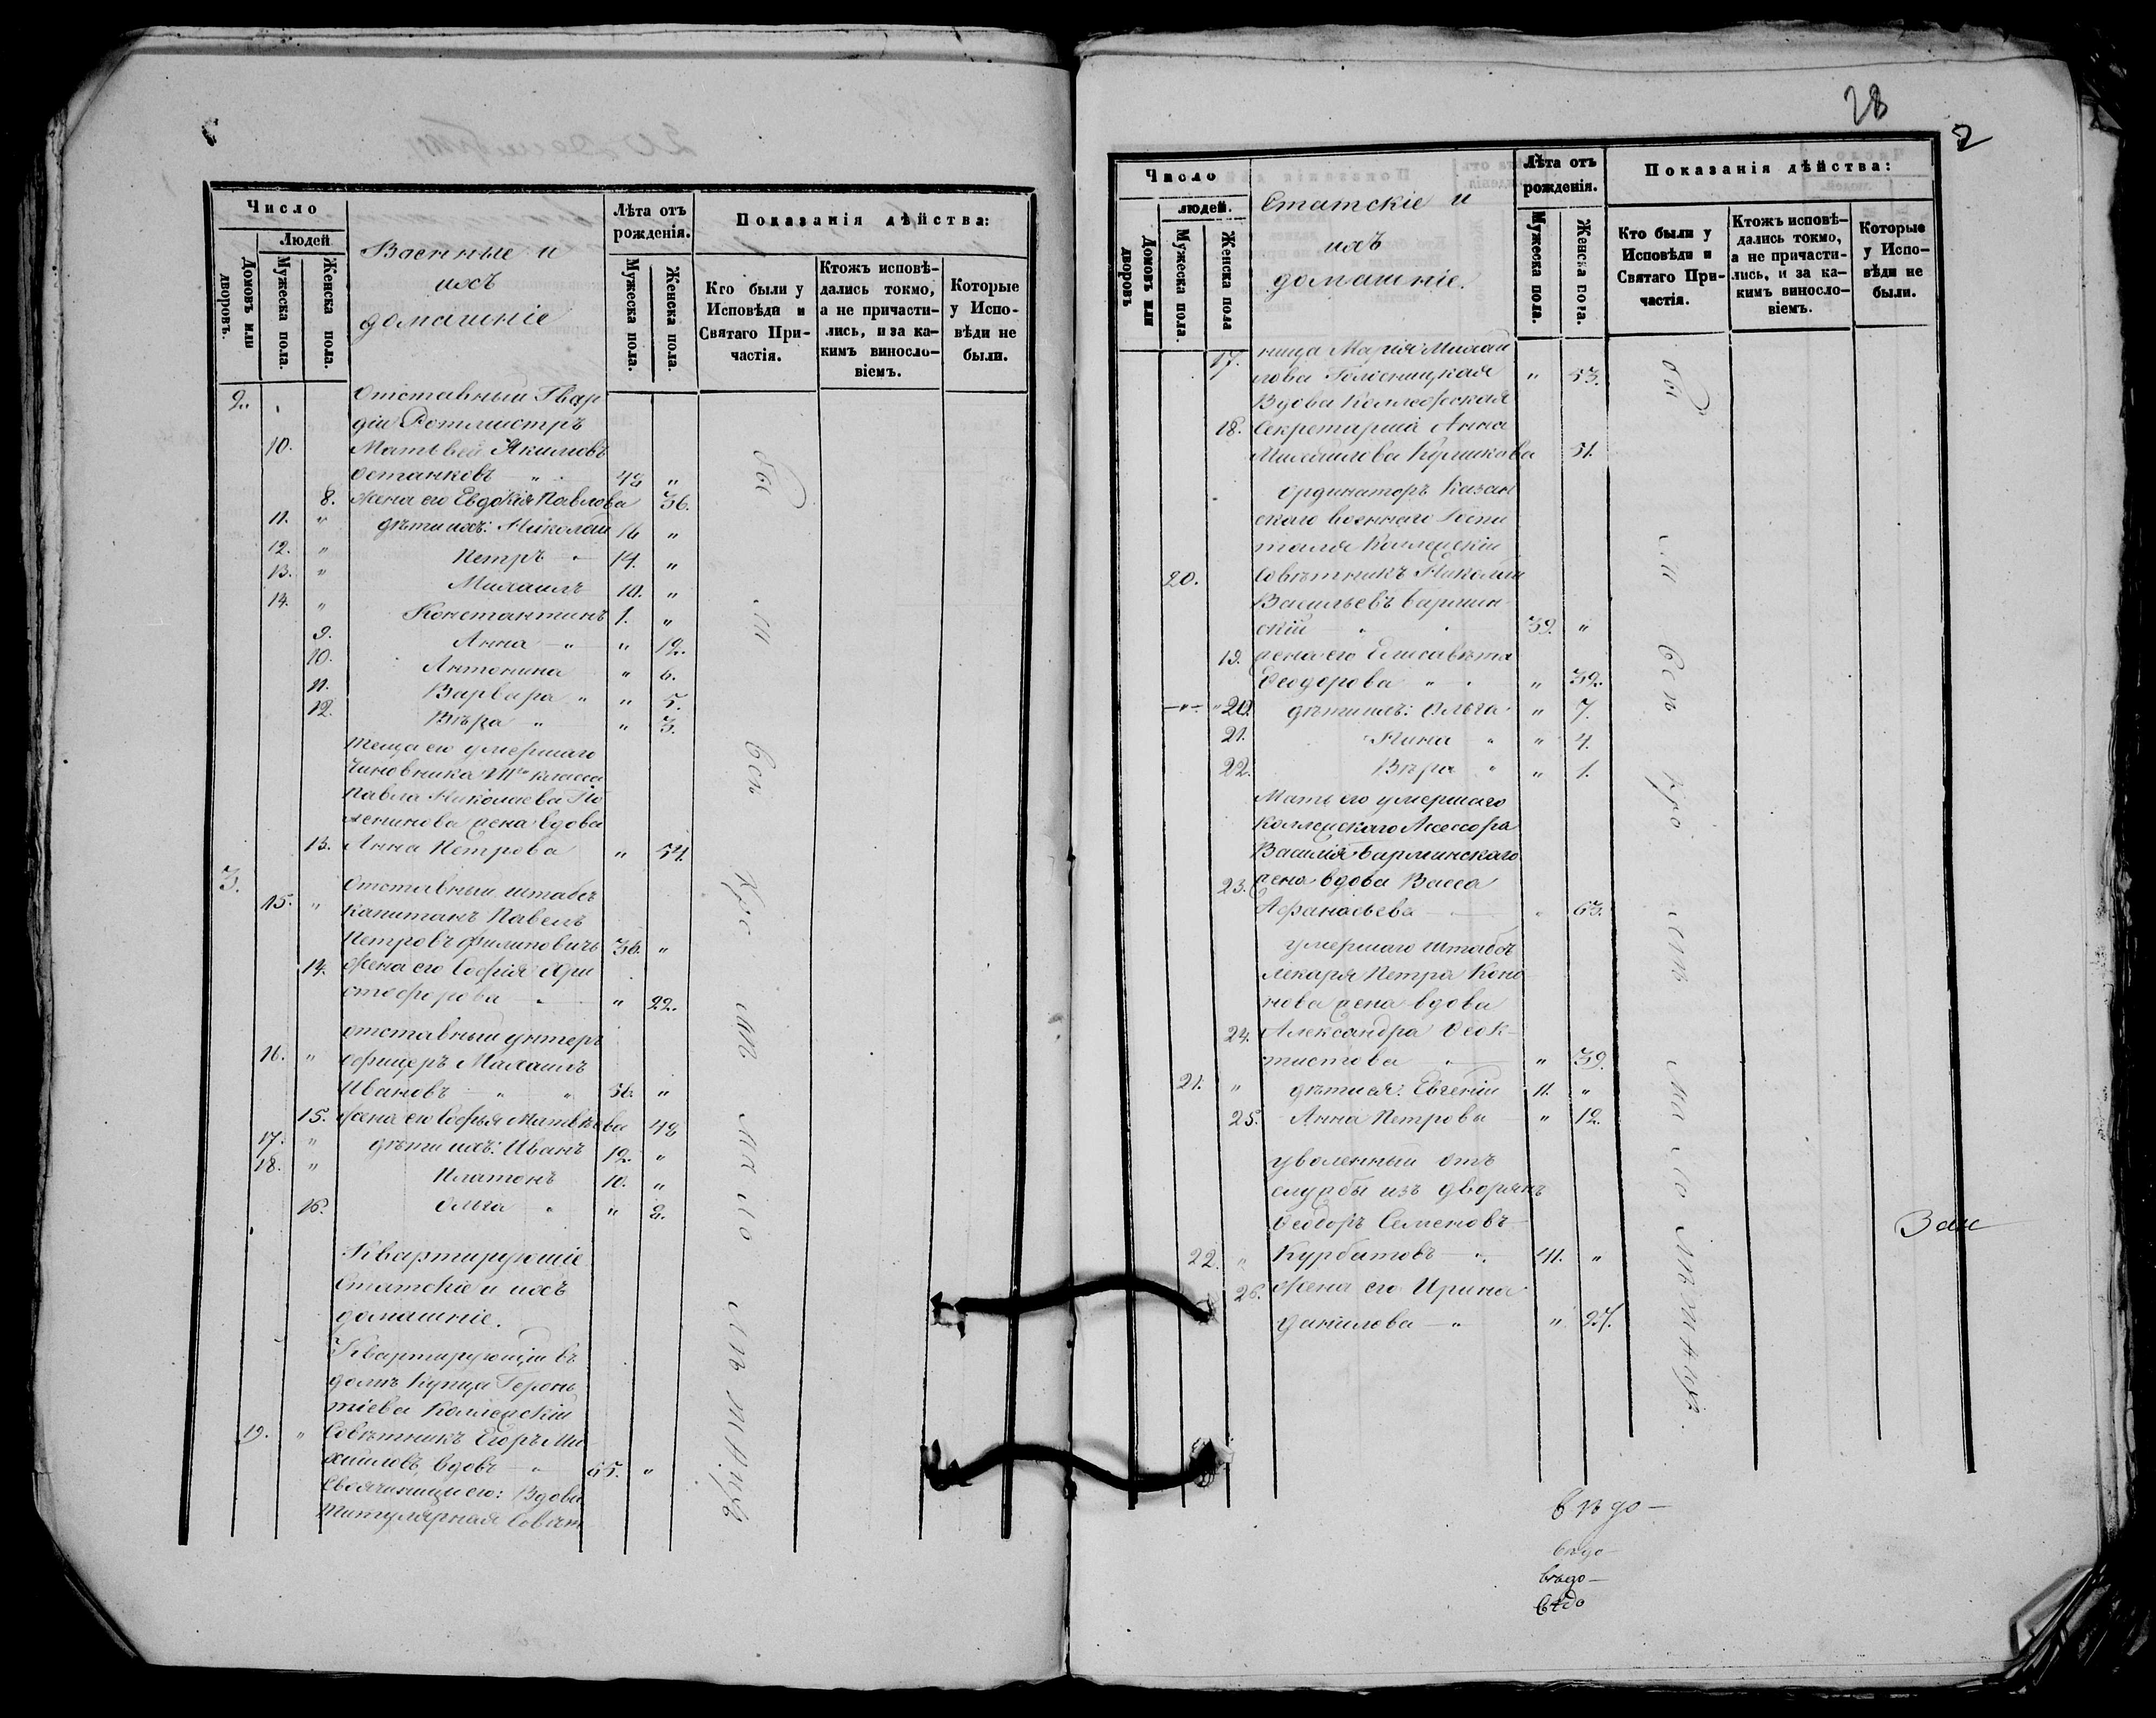 Число
Людей
Домовъ или дворовъ.
Мужеска пола.
Женска пола.
Военные и
ихъ
домашніе
Лѣта отъ рожденія.
Мужеска пола.
Женска пола.
Показанія дѣйства:
Кто были у Исповѣди и Святаго Причастія.
Ктожъ исповѣдались токмо, а не причастились, и за какимъ винословіемъ.
Которые у Исповѣди не были.
2. Отставный Гвар
діи Ротмистръ
10. Матѳвей Якимовъ
Останковъ " 48 "
8. Жена его Евдокія Павлова 36.
11. " дѣти ихъ: Николай 16 "
12. " Петръ " 14. "
13. " Михаилъ 10. "
14. " Константинъ 1. "
9. Анна — " " 12.
10. Антонина " 6.
11. Варвара " " 5.
12. Вѣра " " 3.
Теща его умершаго
Чиновника класса
Павла Николаева
жена вдова
13. Анна Петрова " 54.
3. Отставный штабсъ
15. " Капитанъ Павелъ
Петровъ Филиповичъ 36. "
14. Жена его Софія Хри
стофорова " 22.
отставный унтеръ
16. " офицеръ Михаилъ
Ивановъ " " 56. "
15. Жена его Софья Матвѣева 48
17. " дѣти ихъ: Иванъ 12. "
18. " Платонъ 10. "
16. Ольга " " 8.
Квартирующіе
Статскіе и ихъ
домашніе.
Квартирующій въ
домѣ Купца Геронь
тіева Коллежскій
19. " Совѣтникъ Егоръ Ми
хайловъ, вдовъ " 65. "
Своячиницы его: Вдова
Титулярная Совѣт
28
2
Число
людей.
Домовъ или дворовъ
Мужеска пола.
Женска пола
Статскіе и
ихъ
домашніе.
Лѣта отъ рожденія.
Мужеска пола.
Женска пола.
Показанія дѣйства:
Кто были у Исповѣди и Святаго Причастія.
Ктожъ исповѣдались токмо, а не причастились, и за какимъ винословіемъ.
Которые у Исповѣди не были.
17. ница Марія Михай
лова " 53.
Вдова Коллежская
18. Секретарша Анна
Михайлова Куликова 51.
Ординаторъ Казан
скаго военнаго Госпи
таля Коллежскій
20. Совѣтникъ Николай
Васильевъ Бармин
скій " 39. "
19. жена его Елисавета
Ѳеодорова " " " 32.
— " — " 20. дѣти ихъ: Ольга " 7.
21. Нина " " 4.
22. Вѣра " " 1.
Мать его умершаго
Коллежскаго Асессора
Василія Барминскаго
23. жена вдова Васса
Афанасьева " 63.
умершаго штабсъ
лекаря Петра Коно
нова жена вдова
24. Александра Ѳеок
тистова " " 39.
21. " дѣти ея: Евгеній 11. "
25. Анна Петровы " 12.
уволенный отъ
службы изъ дворянъ
Ѳеодоръ Семеновъ
22. " Курбатовъ " 41. "
26. Жена его Ирина
Данилова — " " 27.
вѣдо —
вѣдо
вѣдо —
вѣдо